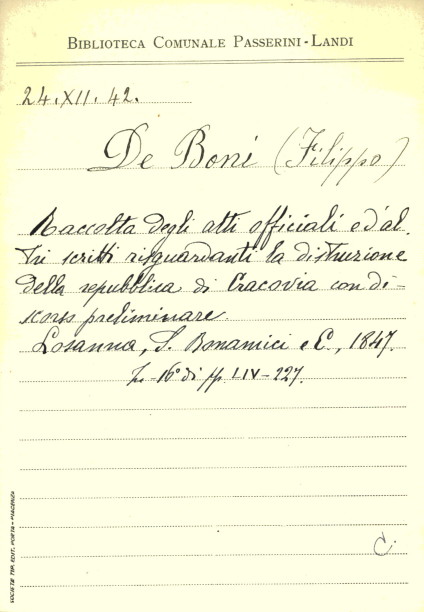 BIBLIOTECA COMUNALE PASSERINI-LANDI
24.XII.42.
De Boni (Filippo)
Raccolta degli atti officiali e d'al-
tri scritti risguardanti la distruzione
della repubblica di Cracovia con di-
scorso preliminare.
Losanna, S. Bonamici e C., 1847.
In-16° di pp. LIV-227.
C.
SOCIETÀ TIP. EDIT. PORTA - PIACENZA